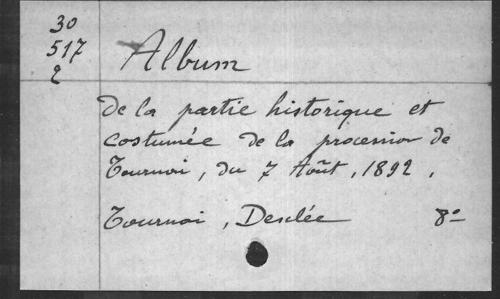 30
517
2
Album
de la partie historique et
costumée de la procession de
Tournai, du 7 Août, 1892.
Tournai, Desclée 8º